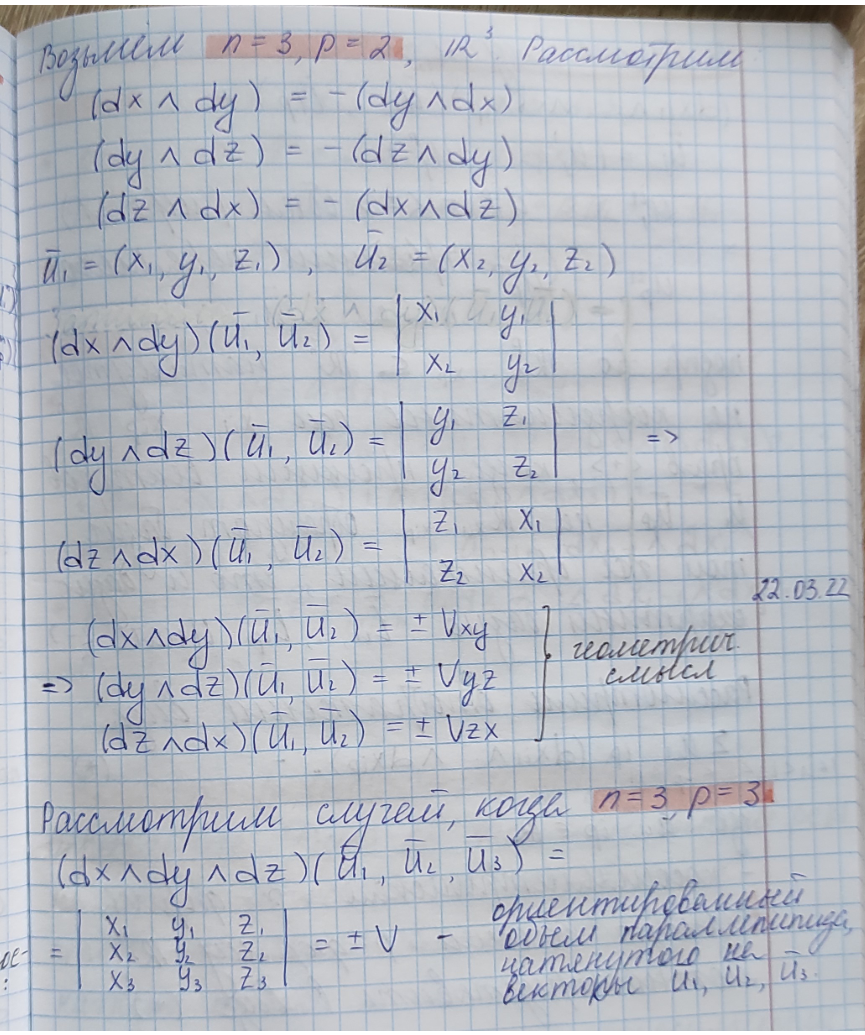 Возьмём n = 3, p = 2, ℝ³. Рассмотрим
(dx ∧ dy) = -(dy ∧ dx)
(dy ∧ dz) = -(dz ∧ dy)
(dz ∧ dx) = -(dx ∧ dz)
ū₁ = (x₁, y₁, z₁), ū₂ = (x₂, y₂, z₂)
(dx ∧ dy)(ū₁, ū₂) = | x₁ y₁ |
| x₂ y₂ |
(dy ∧ dz)(ū₁, ū₂) = | y₁ z₁ | =>
| y₂ z₂ |
(dz ∧ dx)(ū₁, ū₂) = | z₁ x₁ |
| z₂ x₂ |
22.03.22
(dx ∧ dy)(ū₁, ū₂) = ± Vxy
=> (dy ∧ dz)(ū₁, ū₂) = ± Vyz
(dz ∧ dx)(ū₁, ū₂) = ± Vzx
геометрич.
смысл
Рассмотрим случей, когда n = 3, p = 3.
(dx ∧ dy ∧ dz)(ū₁, ū₂, ū₃) =
= | x₁ y₁ z₁ |
| x₂ y₂ z₂ | = ± V -
| x₃ y₃ z₃ |
ориентированный
объем параллепипида,
натянутого на
векторы u₁, u₂, ū₃.